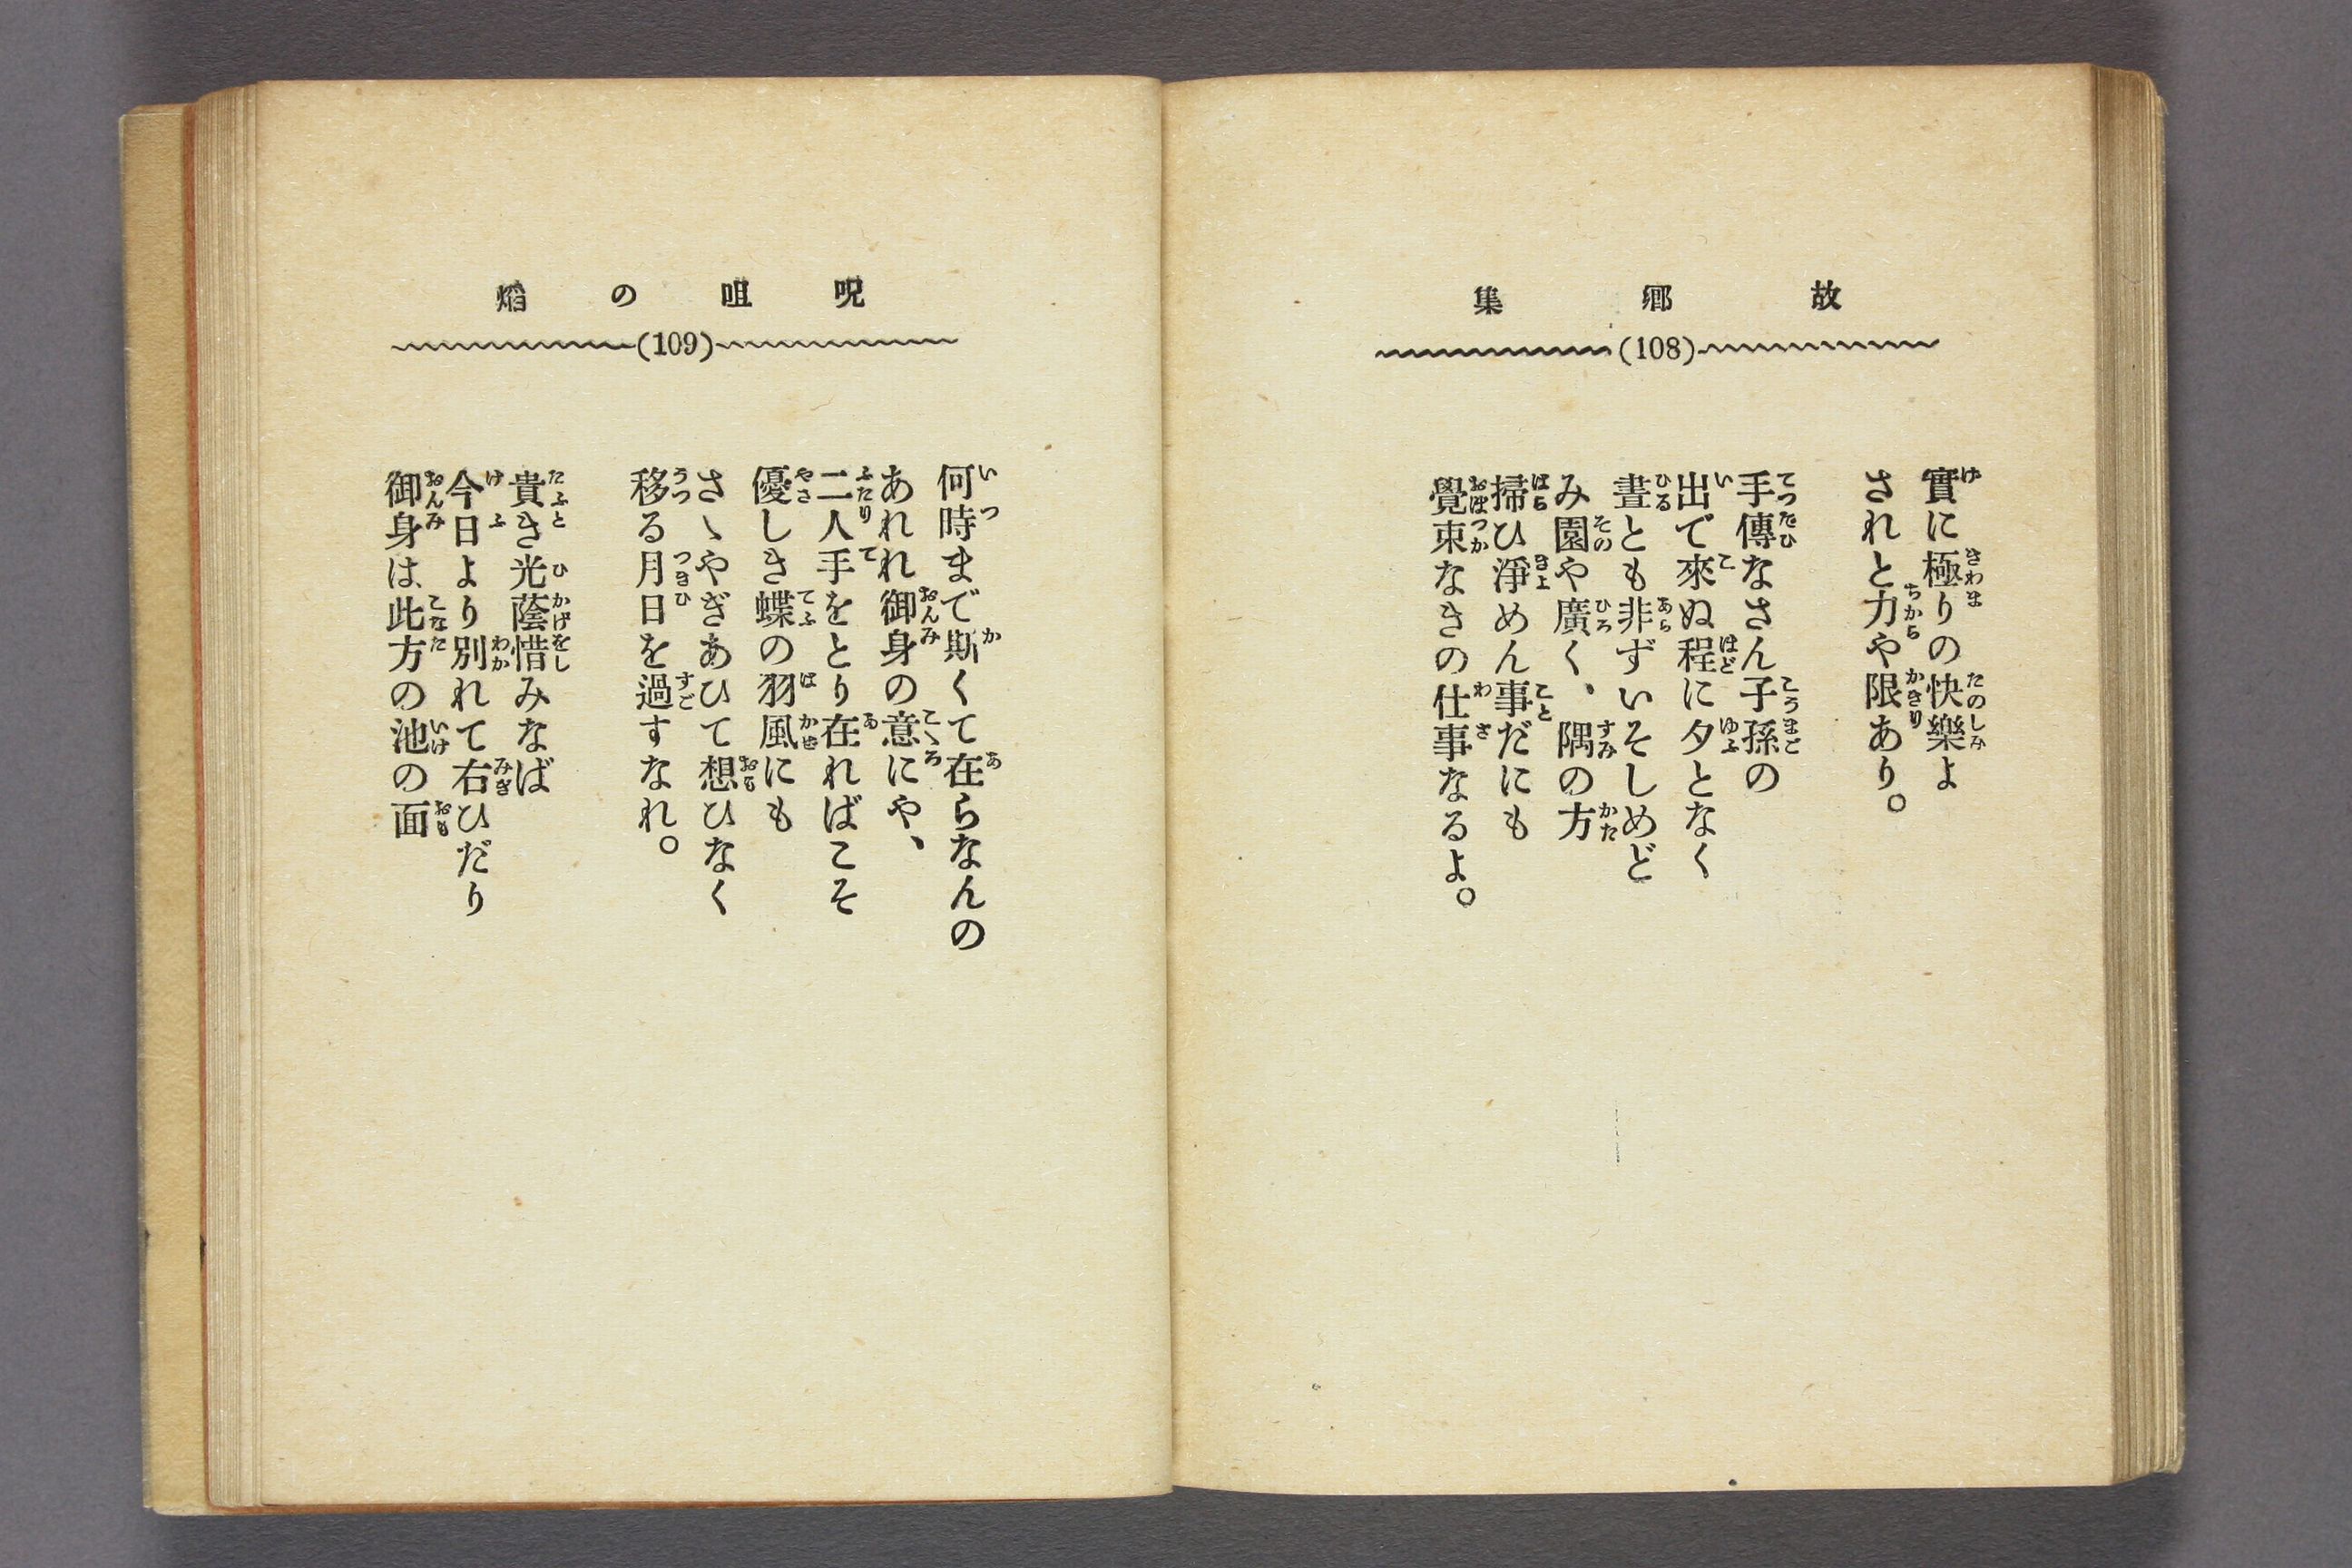 故鄕集
(108)
實に極りの快樂よ
されと力や限あり。
手傳なさん子孫の
出で來ぬ程に夕となく
晝とも非ずいそしめど
み園や廣く、隅の方
掃ひ淨めん事だにも
覺束なきの仕事なるよ。
呪咀の焰
(109)
何時まで斯くて在らなんの
あれれ御身の意にや、
二人手をとり在ればこそ
優しき蝶の羽風にも
さゝやぎあひて想ひなく
移る月日を過すなれ。
貴き光蔭惜みなば
今日より別れて右ひだり
御身は此方の池の面